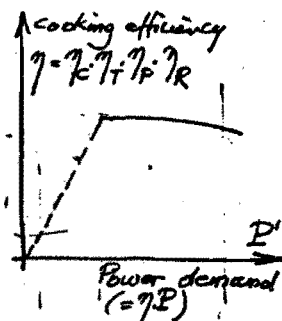 cooking efficiency
η = η_C · η_T · η_P · η_R
P'
Power demand
(= ηP)